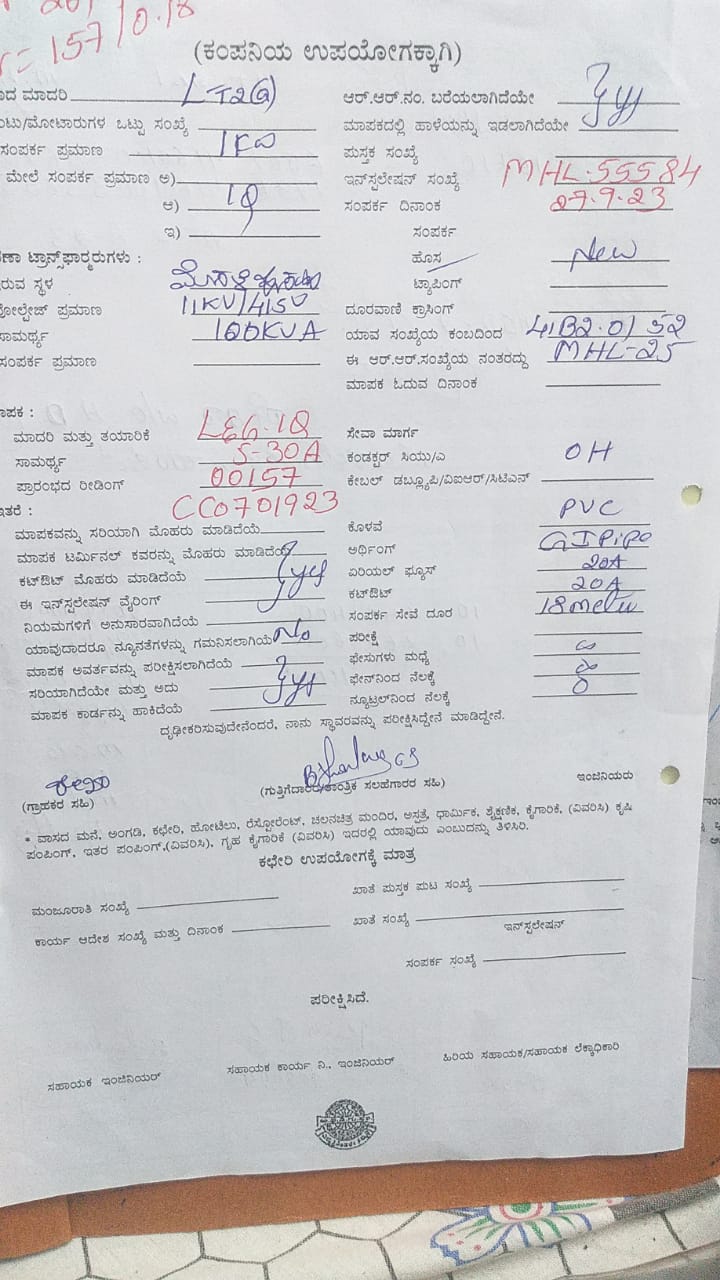 = 157/0.18
(ಕಂಪನಿಯ ಉಪಯೋಗಕ್ಕಾಗಿ)
ಮಾದರಿ LT2(a) ಆರ್.ಆರ್.ನಂ. ಬರೆಯಲಾಗಿದೆಯೇ yes
/ಮೋಟಾರುಗಳ ಒಟ್ಟು ಸಂಖ್ಯೆ ಮಾಪಕದಲ್ಲಿ ಹಾಳೆಯನ್ನು ಇಡಲಾಗಿದೆಯೇ
ಸಂಪರ್ಕ ಪ್ರಮಾಣ 1KW ಪುಸ್ತಕ ಸಂಖ್ಯೆ
ಮೇಲೆ ಸಂಪರ್ಕ ಪ್ರಮಾಣ ಅ) ಇನ್‌ಸ್ಟಲೇಷನ್ ಸಂಖ್ಯೆ MHL.55584
ಆ) 1Q ಸಂಪರ್ಕ ದಿನಾಂಕ 27.9.23
ಇ) ಸಂಪರ್ಕ
ಟ್ರಾನ್ಸ್‌ಫಾರ್ಮರುಗಳು : ಹೊಸ New
ಇರುವ ಸ್ಥಳ ಟ್ಯಾಪಿಂಗ್
ವೋಲ್ಟೇಜ್ ಪ್ರಮಾಣ 11KV/415V ದೂರವಾಣಿ ಕ್ರಾಸಿಂಗ್
ಸಾಮರ್ಥ್ಯ 100KVA ಯಾವ ಸಂಖ್ಯೆಯ ಕಂಬದಿಂದ
ಸಂಪರ್ಕ ಪ್ರಮಾಣ ಈ ಆರ್.ಆರ್.ಸಂಖ್ಯೆಯ ನಂತರದ್ದು MHL-25
ಮಾಪಕ ಓದುವ ದಿನಾಂಕ
ಮಾಪಕ :
ಮಾದರಿ ಮತ್ತು ತಯಾರಿಕೆ L&G.1Q ಸೇವಾ ಮಾರ್ಗ
ಸಾಮರ್ಥ್ಯ 5-30A ಕಂಡಕ್ಟರ್ ಸಿಯು/ಎ OH
ಪ್ರಾರಂಭದ ರೀಡಿಂಗ್ 00157 ಕೇಬಲ್ ಡಬ್ಲ್ಯೂಪಿ/ವಿಐಆರ್/ಸಿಟಿಎಸ್
ಇತರೆ : CC0701923
ಮಾಪಕವನ್ನು ಸರಿಯಾಗಿ ಮೊಹರು ಮಾಡಿದೆಯೆ ಕೊಳವೆ PVC
ಮಾಪಕ ಟರ್ಮಿನಲ್ ಕವರನ್ನು ಮೊಹರು ಮಾಡಿದೆಯೆ ಅರ್ಥಿಂಗ್ GI Pipe
ಕಟ್‌ಔಟ್ ಮೊಹರು ಮಾಡಿದೆಯೆ yes ಏರಿಯಲ್ ಫ್ಯೂಸ್ 20A
ಈ ಇನ್‌ಸ್ಟಲೇಷನ್ ವೈರಿಂಗ್ ಕಟ್‌ಔಟ್ 20A
ನಿಯಮಗಳಿಗೆ ಅನುಸಾರವಾಗಿದೆಯೆ ಸಂಪರ್ಕ ಸೇವೆ ದೂರ 18
ಯಾವುದಾದರೂ ನ್ಯೂನತೆಗಳನ್ನು ಗಮನಿಸಲಾಗಿಯೆ No ಪರೀಕ್ಷೆ
ಮಾಪಕ ಅವರ್ತವನ್ನು ಪರೀಕ್ಷಿಸಲಾಗಿದೆಯೆ ಫೇಸುಗಳು ಮಧ್ಯೆ ∞
ಸರಿಯಾಗಿದೆಯೇ ಮತ್ತು ಅದು yes ಫೇಸ್‌ನಿಂದ ನೆಲಕ್ಕೆ ∞
ಮಾಪಕ ಕಾರ್ಡನ್ನು ಹಾಕಿದೆಯೆ ನ್ಯೂಟ್ರಲ್‌ನಿಂದ ನೆಲಕ್ಕೆ 0
ದೃಢೀಕರಿಸುವುದೇನೆಂದರೆ, ನಾನು ಸ್ಥಾವರವನ್ನು ಪರೀಕ್ಷಿಸಿದ್ದೇನೆ ಮಾಡಿದ್ದೇನೆ.
(ಗ್ರಾಹಕರ ಸಹಿ) (ಗುತ್ತಿಗೆದಾರರ/ತಾಂತ್ರಿಕ ಸಲಹೆಗಾರರ ಸಹಿ) ಇಂಜಿನಿಯರು
* ವಾಸದ ಮನೆ, ಅಂಗಡಿ, ಕಛೇರಿ, ಹೋಟೆಲು, ರೆಸ್ಟೋರೆಂಟ್, ಚಲನಚಿತ್ರ ಮಂದಿರ, ಆಸ್ಪತ್ರೆ, ಧಾರ್ಮಿಕ, ಶೈಕ್ಷಣಿಕ, ಕೈಗಾರಿಕೆ, (ವಿವರಿಸಿ) ಕೃಷಿ
ಪಂಪಿಂಗ್, ಇತರ ಪಂಪಿಂಗ್,(ವಿವರಿಸಿ), ಗೃಹ ಕೈಗಾರಿಕೆ (ವಿವರಿಸಿ) ಇದರಲ್ಲಿ ಯಾವುದು ಎಂಬುದನ್ನು ತಿಳಿಸಿರಿ.
ಕಛೇರಿ ಉಪಯೋಗಕ್ಕೆ ಮಾತ್ರ
ಮಂಜೂರಾತಿ ಸಂಖ್ಯೆ ಖಾತೆ ಪುಸ್ತಕ ಪುಟ ಸಂಖ್ಯೆ
ಕಾರ್ಯ ಆದೇಶ ಸಂಖ್ಯೆ ಮತ್ತು ದಿನಾಂಕ ಖಾತೆ ಸಂಖ್ಯೆ
ಇನ್‌ಸ್ಟಲೇಷನ್
ಸಂಪರ್ಕ ಸಂಖ್ಯೆ
ಪರೀಕ್ಷಿಸಿದೆ.
ಸಹಾಯಕ ಇಂಜಿನಿಯರ್ ಸಹಾಯಕ ಕಾರ್ಯ ನಿ., ಇಂಜಿನಿಯರ್ ಹಿರಿಯ ಸಹಾಯಕ/ಸಹಾಯಕ ಲೆಕ್ಕಾಧಿಕಾರಿ